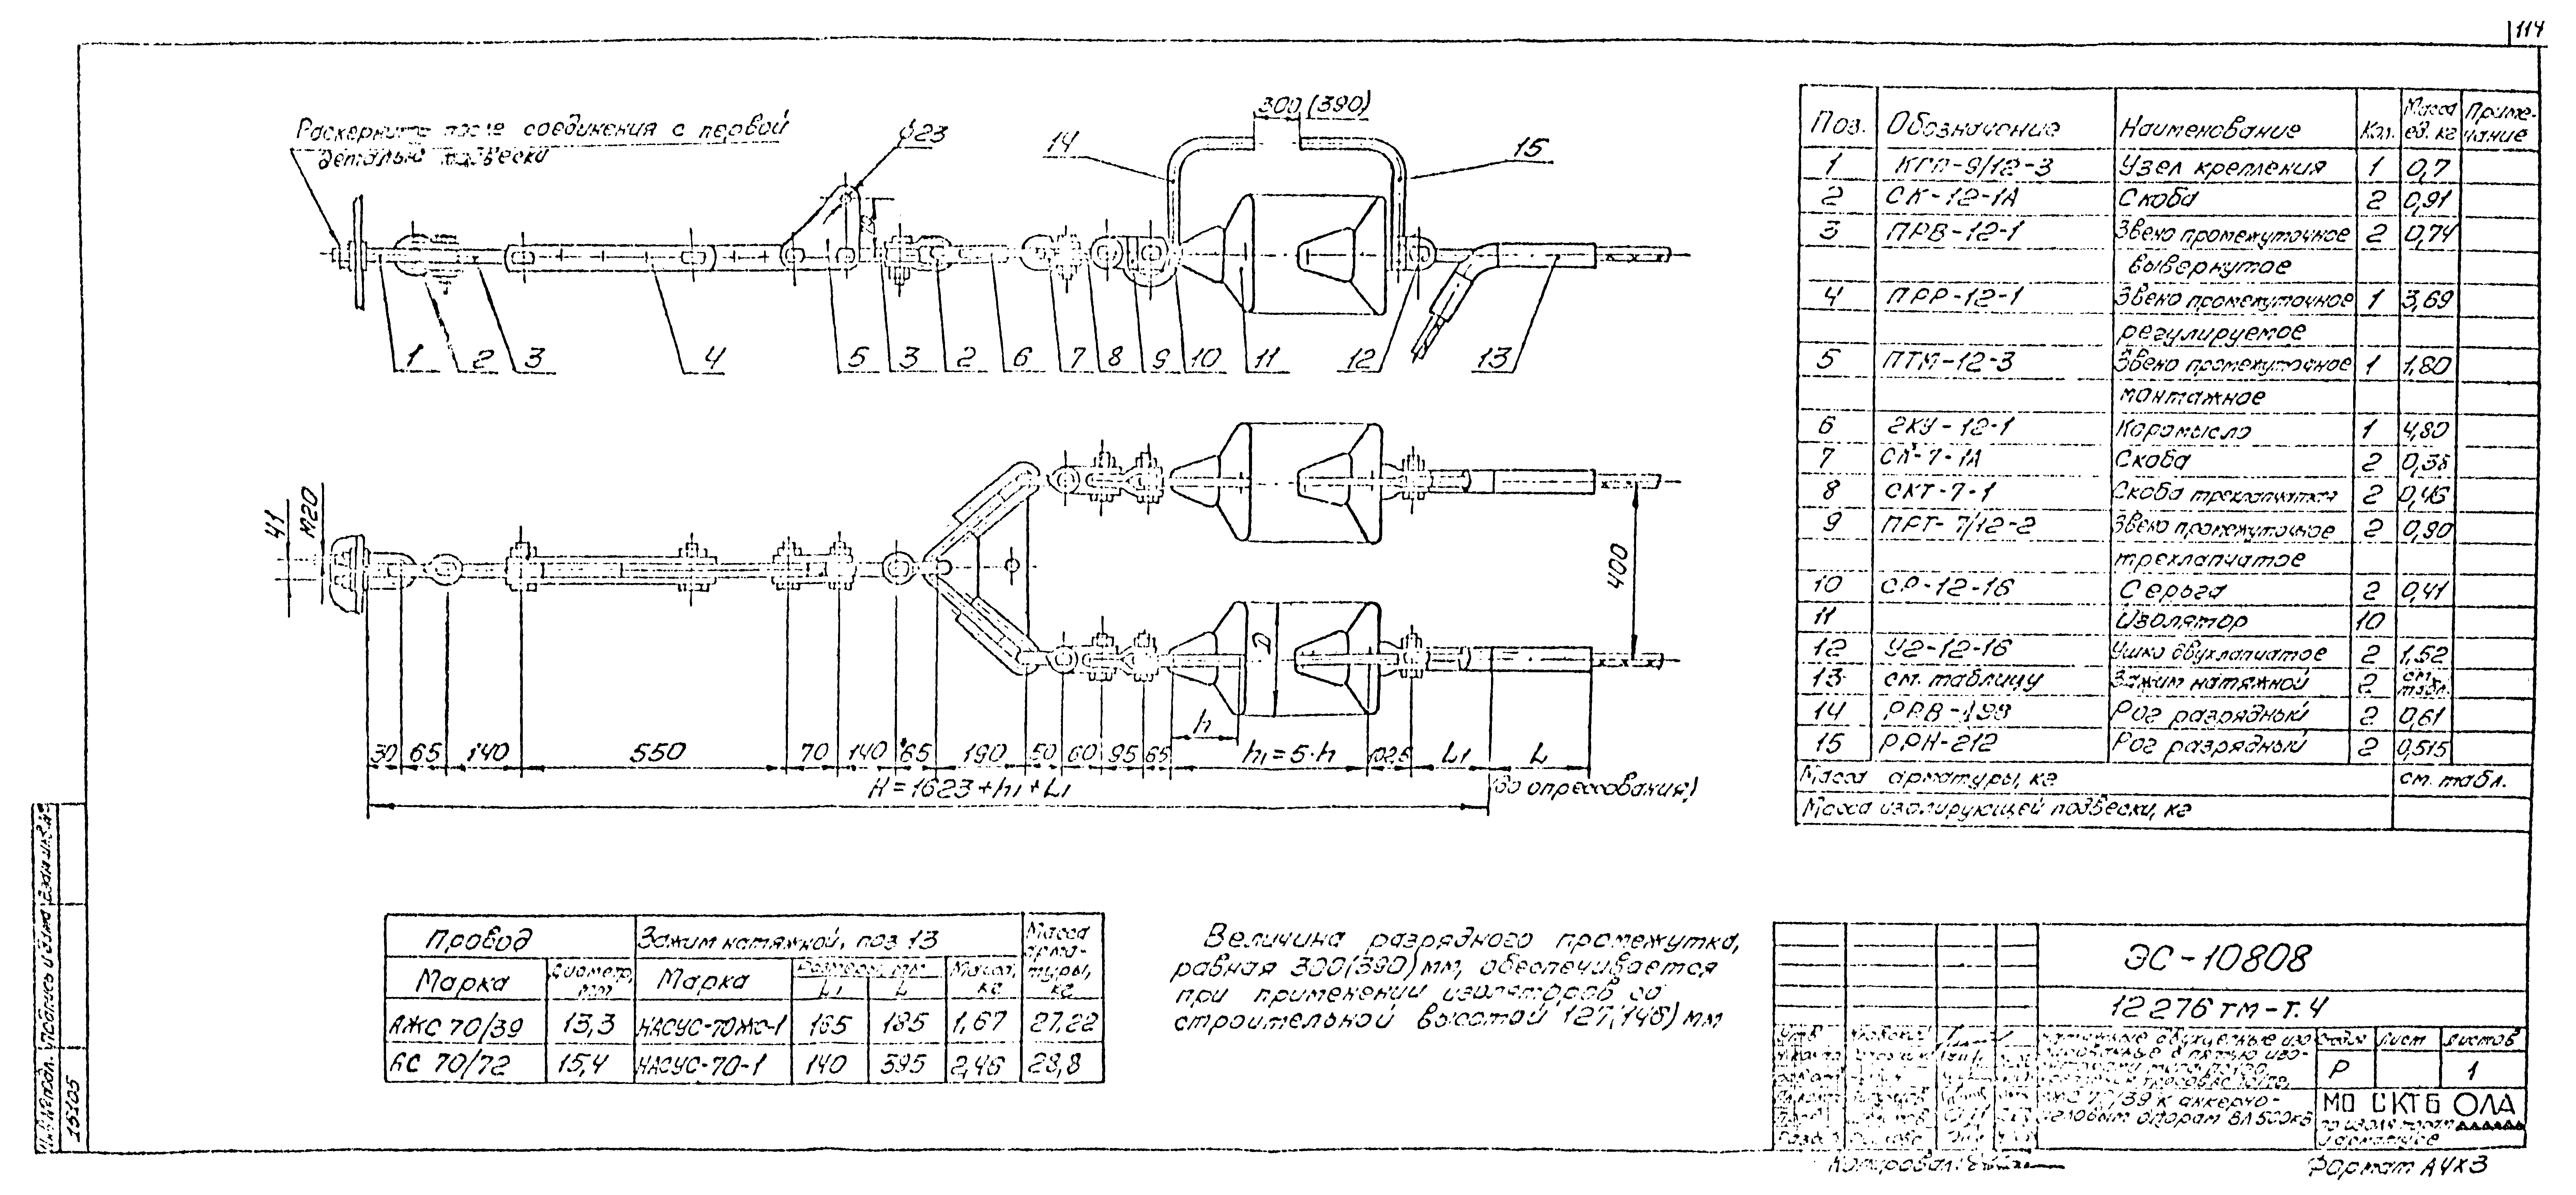 114
Раскернить после соединения с первой
деталью подвески
⌀23
14
300 (390)
15
1 2 3 4 5 3 2 6 7 8 9 10 11 12 13
41
М20
400
D
h
30 65 140 550 70 140 65 190 50 60 95 65 h₁=5·h 102,5 L₁ L
H=1623+h₁+L₁
(до опрессования)
Поз. Обозначение Наименование Кол. Масса ед. кг Приме-чание
1 КГП-9/12-3 Узел крепления 1 0,7
2 СК-12-1А Скоба 2 0,91
3 ПРВ-12-1 Звено промежуточное 2 0,74
вывернутое
4 ПРР-12-1 Звено промежуточное 1 3,69
регулируемое
5 ПТМ-12-3 Звено промежуточное 1 1,80
монтажное
6 2КУ-12-1 Коромысло 1 4,80
7 СК-7-1А Скоба 2 0,38
8 СКТ-7-1 Скоба трехлапчатая 2 0,46
9 ПРТ-7/12-2 Звено промежуточное 2 0,90
трехлапчатое
10 СР-12-16 Серьга 2 0,41
11 Изолятор 10
12 У2-12-16 Ушко двухлапчатое 2 1,52
13 см. таблицу Зажим натяжной 2 см. табл.
14 РРВ-199 Рог разрядный 2 0,61
15 РРН-212 Рог разрядный 2 0,515
Масса арматуры, кг см. табл.
Масса изолирующей подвески, кг
Провод Зажим натяжной, поз 13 Масса арма-туры, кг
Марка Диаметр, мм Марка Размеры, мм Масса, кг
L₁ L
АЖС 70/39 13,3 НАСУС-70ЖС-1 165 185 1,67 27,22
АС 70/72 15,4 НАСУС-70-1 140 395 2,46 28,8
Величина разрядного промежутка,
равная 300(390) мм, обеспечивается
при применении изоляторов со
строительной высотой 127(146) мм
ЭС-10808
12276тм-т.4
Натяжные двухцепные изо-
АЖС 70/39 к анкерно-
угловым опорам ВЛ 500кВ
Стадия Лист Листов
Р 1
МО СКТБ ОЛА
по изоляторам
и арматуре
Копировал:
Формат А4х3
Инв.№подл. Подпись и дата Взам.инв.№
15105